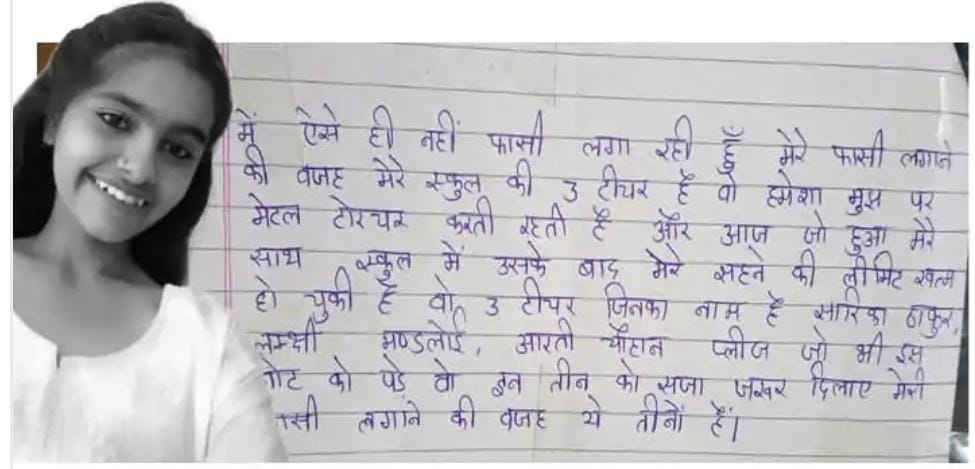 में ऐसे ही नहीं फासी लगा रही हूँ मेरे फासी लगाने
की वजह मेरे स्कुल की 3 टीचर है वो हमेशा मुझ पर
मेटल टोरचर करती रहती है और आज जो हुआ मेरे
साथ स्कुल में उसके बाद मेरे सहने की लीमिट खत्म
हो चुकी है वो 3 टीचर जिनका नाम है सारिका ठाकुर,
मण्डलोई, आरती चौहान प्लीज जो भी इस
नोट को पड़े वो इन तीन को सजा जरूर दिलाए मेरी
लगाने की वजह ये तीनों हैं।